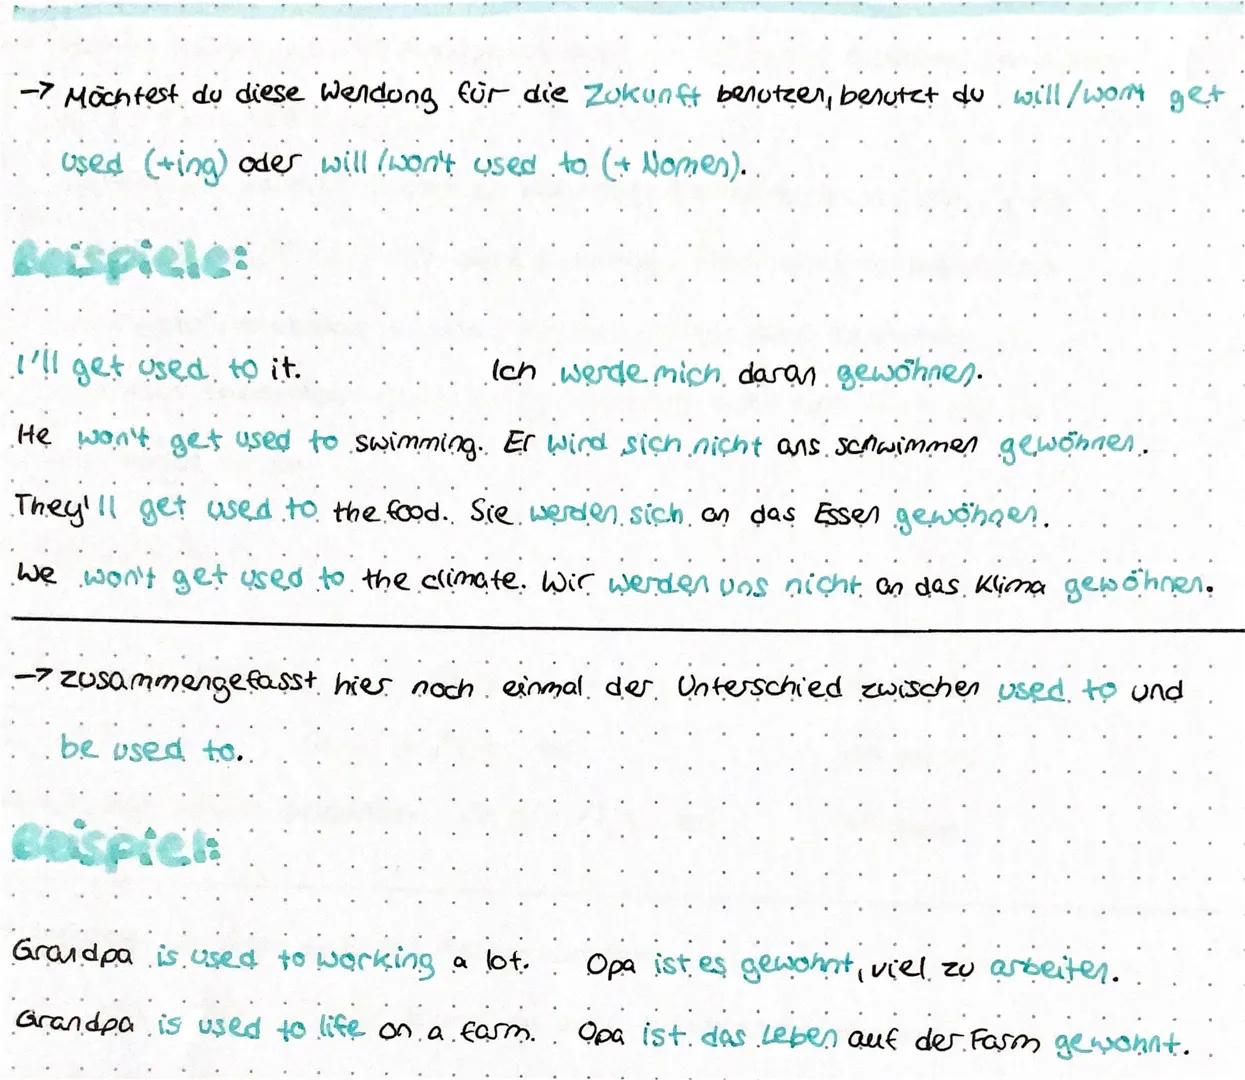 → Möchtest du diese Wendung für die Zukunft benutzen, benutzt du will/won't get
used (+ing) oder will/won't used to (+ Nomen).
Beispiele:
I'll get used to it. Ich werde mich daran gewöhnen.
He won't get used to swimming. Er wird sich nicht ans schwimmen gewöhnen.
They'll get used to the food. Sie werden sich an das Essen gewöhnen.
We won't get used to the climate. Wir werden uns nicht an das Klima gewöhnen.
→ zusammengefasst hier noch einmal der Unterschied zwischen used to und
be used to.
Beispiel:
Grandpa is used to working a lot. Opa ist es gewohnt, viel zu arbeiten.
Grandpa is used to life on a farm. Opa ist das Leben auf der Farm gewohnt.